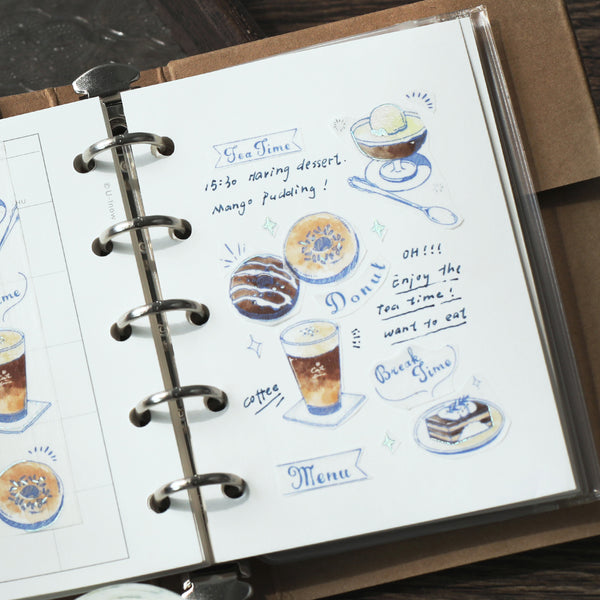 ©U.inow
me
Tea Time
15:30 Having dessert.
Mango Pudding!
Donut
OH!!!
Enjoy the
Tea time!
want to eat
coffee
Break
Time
Menu